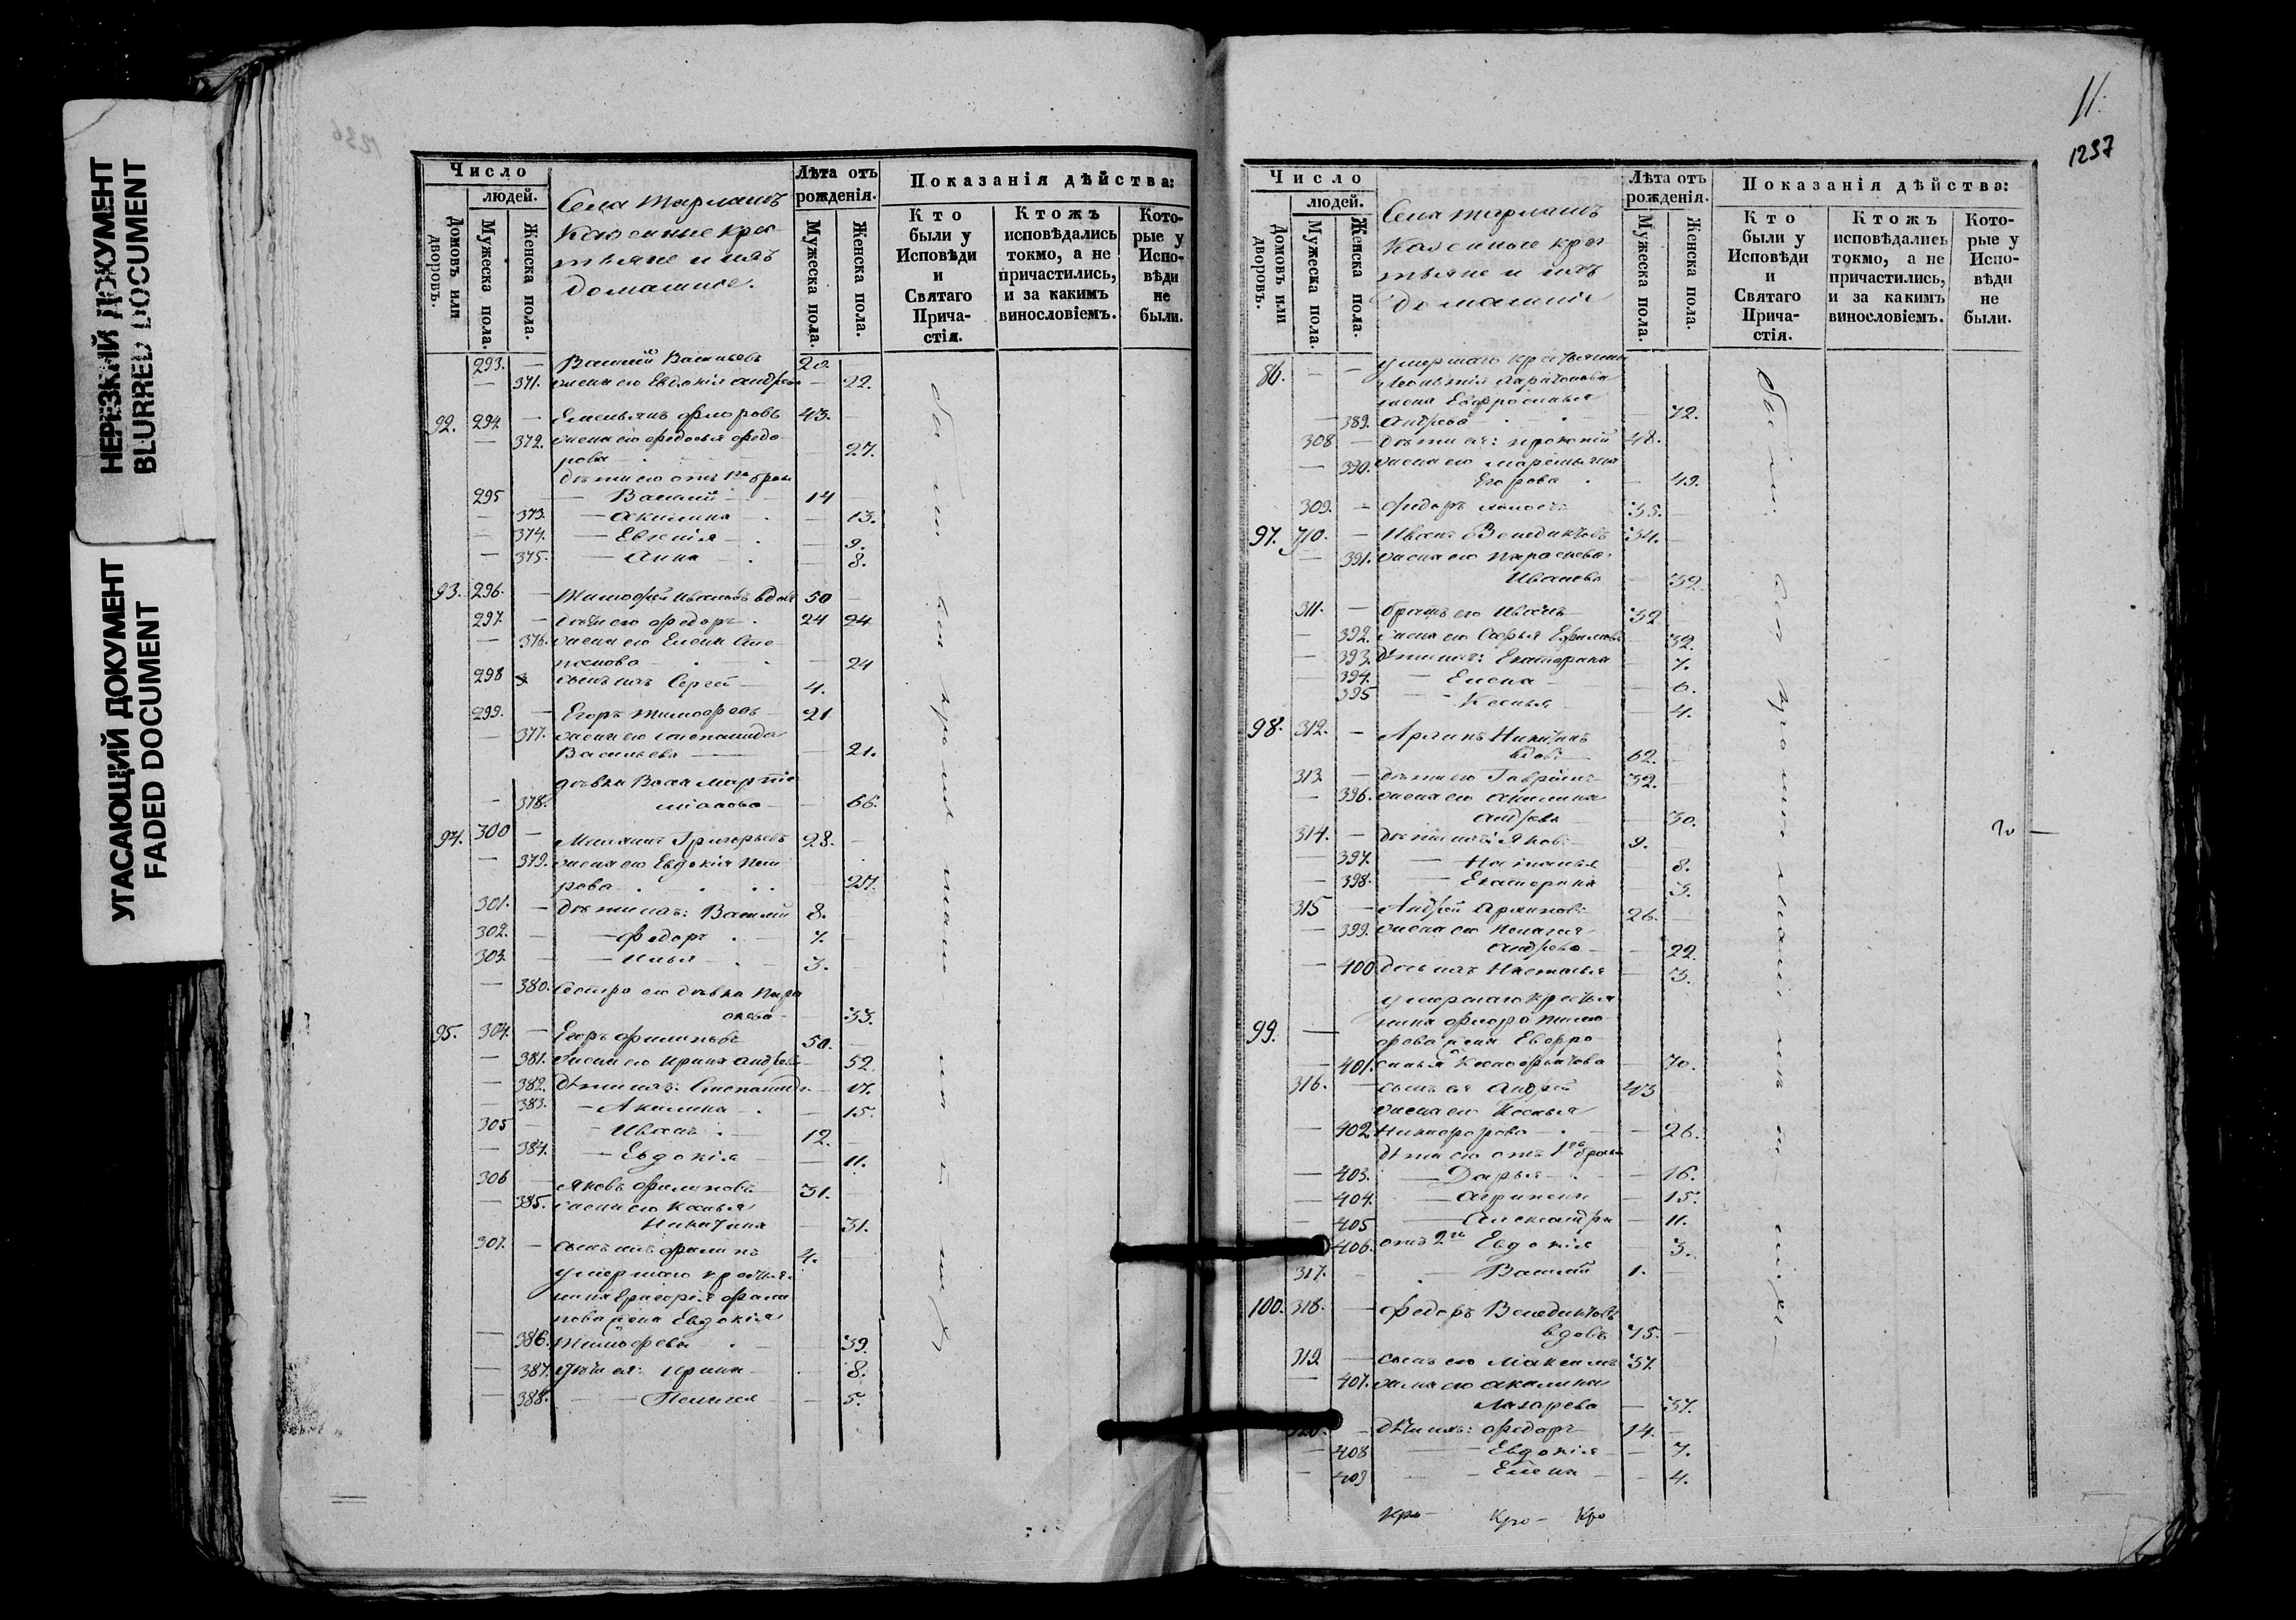 НЕРЕЗКИЙ ДОКУМЕНТ
BLURRED DOCUMENT
УГАСАЮЩИЙ ДОКУМЕНТ
FADED DOCUMENT
Число
людей.
Домовъ или дворовъ.
Мужеска пола.
Женска пола.
Села
Казенные кре-
стьяне и ихъ
домашніе.
Лѣта отъ рожденія.
Мужеска пола.
Женска пола.
Показанія дѣйства:
Кто были у Исповѣди и Святаго Прича-стія.
Ктожъ исповѣдались токмо, а не причастились, и за какимъ винословіемъ.
Кото-рые у Испо-вѣди не были.
293. — Василій Васильевъ 20.
— 371. жена его Евдокія Андреева — 22.
92. 294. — Емельянъ Флоровъ 43. —
— 372. жена его Федосья Федо-
рова — 27.
дѣти его отъ 1го брака
295 — Василій 14 —
— 373. — Акилина — 13.
— 374. — Евгенія — 9.
— 375. — Анна — 8.
93. 296. — Тимофей Ивановъ вдовъ 50 —
297. — сынъ его Федоръ 24 24
— 376. жена его Елена Сте-
панова — 24
298 сынъ ихъ Сергей 4.
299. — Егоръ Тимофеевъ 21
— 377. жена его Степанида
Васильева — 21.
дѣвка Васса
— 378. — 66.
94. 300 — Григорьевъ 28. —
— 379. жена его Евдокія Пет-
рова — 27.
301. — дѣти ихъ: Василій 8.
302. — — Федоръ 7. —
303. — — Илья 3.
— 380. Сестра его дѣвка Пара-
скева — 33.
95. 304. — Егоръ Филиповъ 50. —
— 381. жена его Ирина Андреева — 52
— 382. дѣти ихъ: Степанида — 17.
— 383. — Акилина — 15.
305 — — Иванъ 12. —
— 384. — Евдокія — 11.
306 — Яковъ Филиповъ 31. —
— 385. жена его Ксенья
Никитина — 31.
307. — сынъ ихъ Филипъ 4. —
умершаго крестья-
нина Григорія Фили-
пова жена Евдокія
— 386. Тимофеева — 39.
— 387. дѣти ея: Ирина — 8.
— 388. — Пелагея — 5.
11.
1237
Число
людей.
Домовъ или дворовъ.
Мужеска пола.
Женска пола.
Села
Казенные кре-
стьяне и ихъ
домашніе
Лѣта отъ рожденія.
Мужеска пола.
Женска пола.
Показанія дѣйства:
Кто были у Исповѣди и Святаго Прича-стія.
Ктожъ исповѣдались токмо, а не причастились, и за какимъ винословіемъ.
Кото-рые у Испо-вѣди не были.
86. — — умершаго крестьянина
Харитонова
жена Евфросинья
— 389. Андреева — 72.
308 — дѣти ея: Прокопій 48.
— 390. жена его
Егорова — 49.
309. — Федоръ холостъ 35. —
97. 310. — Иванъ Бенедиктовъ 34. —
— 391. жена его Параскева
Иванова — 32.
311. — братъ его Иванъ 32
— 392. жена его Софья Ефимова — 32.
— 393. дѣти ихъ: Екатерина — 7.
— 394. — Елена — 6.
395 — Ксенья — 4.
98. 312. — Никитинъ
вдовъ 62. —
313 — дѣти его Гавріилъ 32. —
— 396. жена его Акилина
Андреева — 30.
314. — дѣти ихъ: Яковъ 9. —
— 397. — Наталья — 8.
— 398. — Екатерина — 3.
315 — Андрей 26. —
— 399. жена его Пелагея
Андреева — 22.
— 400 дочь ихъ Настасья — 3.
умершаго крестья-
99. — нина Флора Тимо-
феева жена Евфро-
— 401. синья — 70.
316. — сынъ ея Андрей 43
жена его Ксенья
— 402 Никифорова — 26.
дѣти его отъ 1го брака
— 403. — Дарья — 16.
— 404. — Агрипена — 15.
— 405 — Александра — 11.
406. отъ 2го Евдокія — 3.
317. — — Василій 1. —
100. 318. — Федоръ Бенедиктовъ
вдовъ 75. —
319 — сынъ его Максимъ 37.
— 407. жена его Акилина
Лазарева — 37.
320. — дѣти ихъ: Федоръ 14. —
— 408 — Евдокія — 7.
— 409 — Елена — 4.